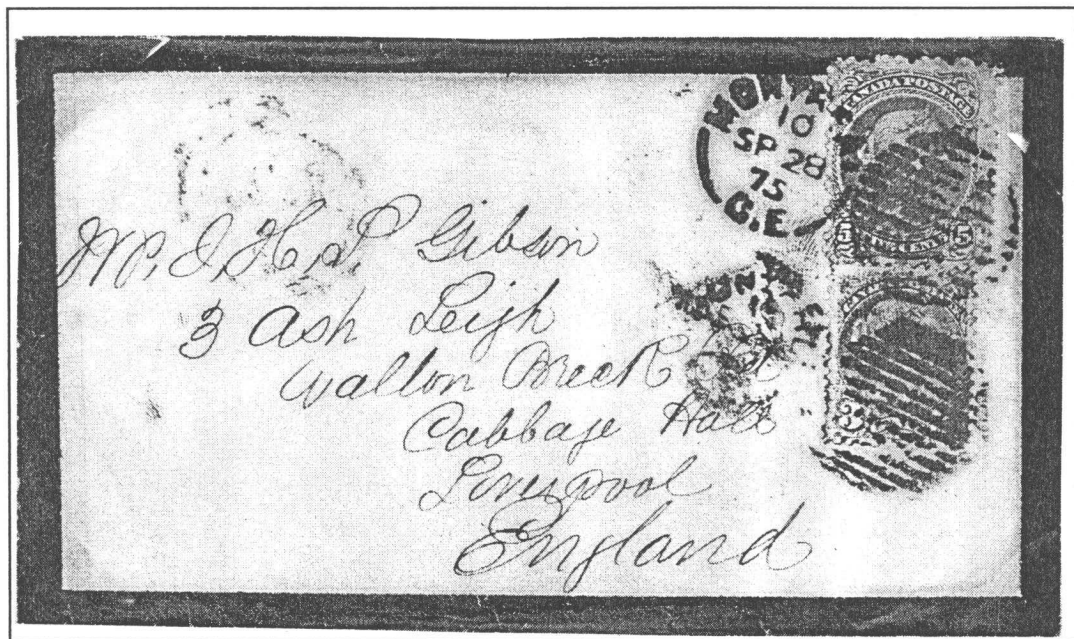 MONTR
10
SP 28
75
C.E
CANADA POSTAGE
5 CENTS 5
Mr. J. H. S. Gibson
3 Ash Leigh
Walton Breck Rd
Cabbage Hall
Liverpool
England